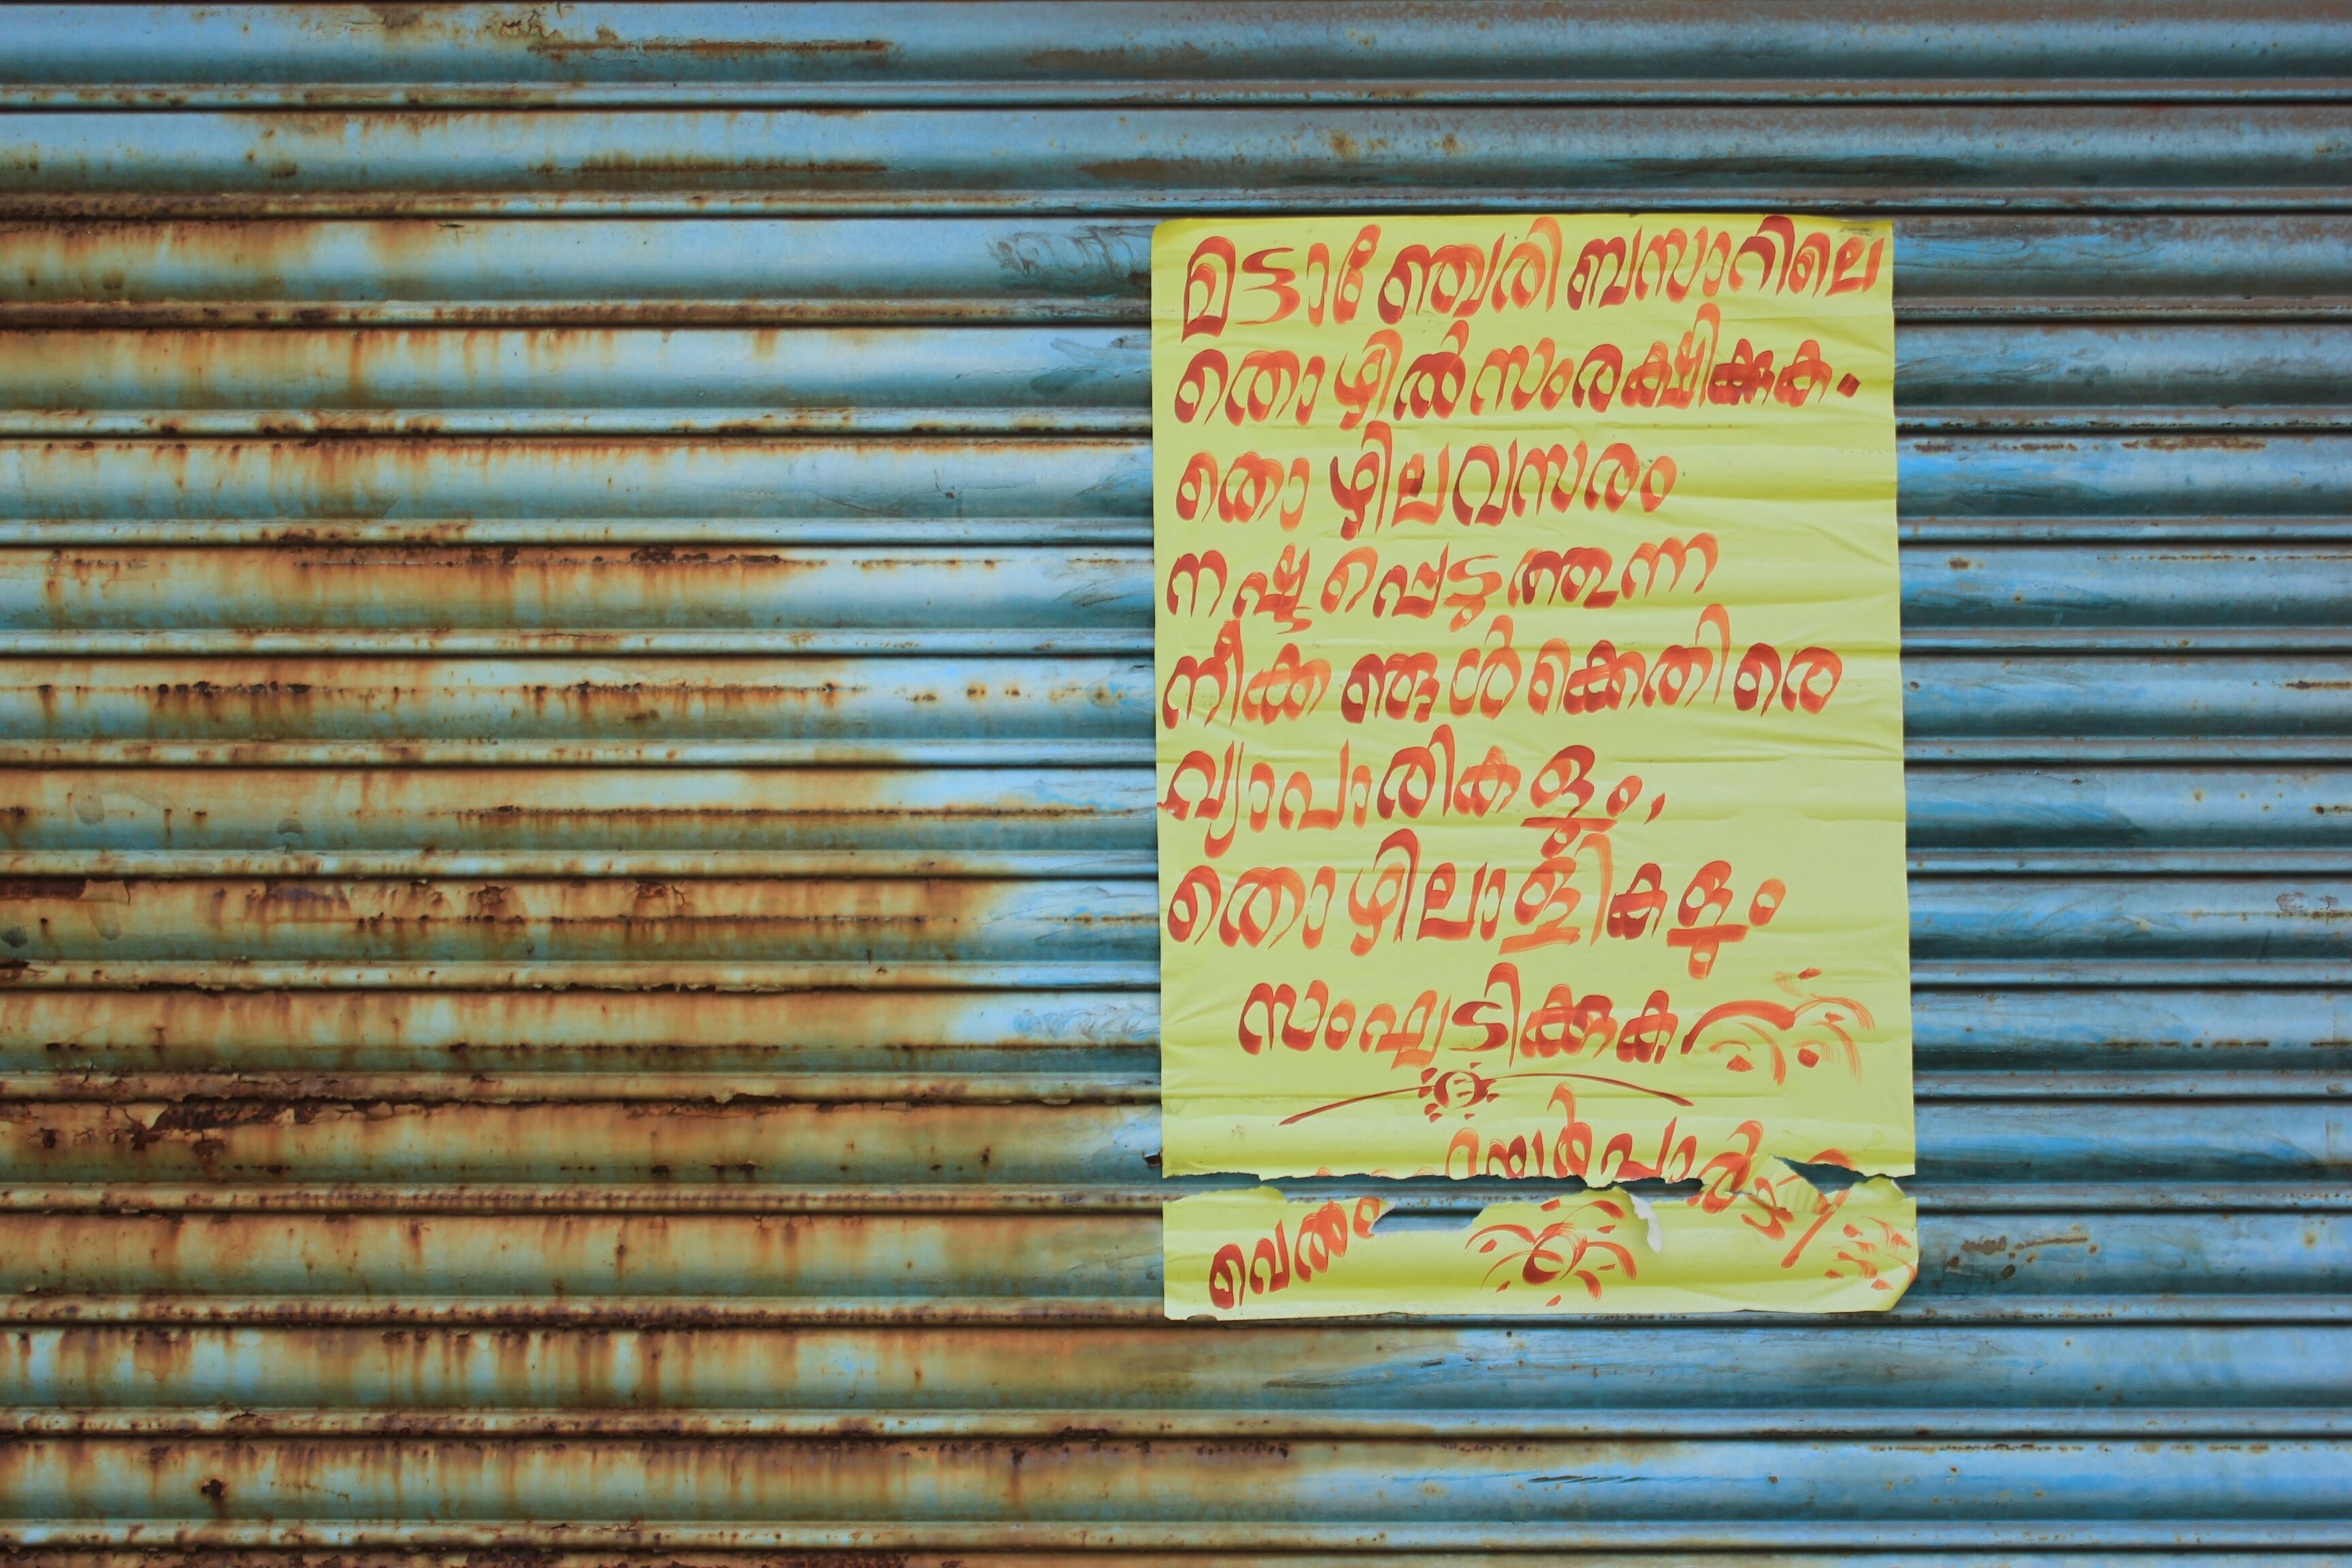 മട്ടാഞ്ചേരി ബസാറിലെ
തൊഴിൽ സംരക്ഷിക്കുക.
തൊഴിലവസരം
നഷ്ടപ്പെടുത്തുന്ന
നീക്കങ്ങൾക്കെതിരെ
വ്യാപാരികളും,
തൊഴിലാളികളും
സംഘടിക്കുക